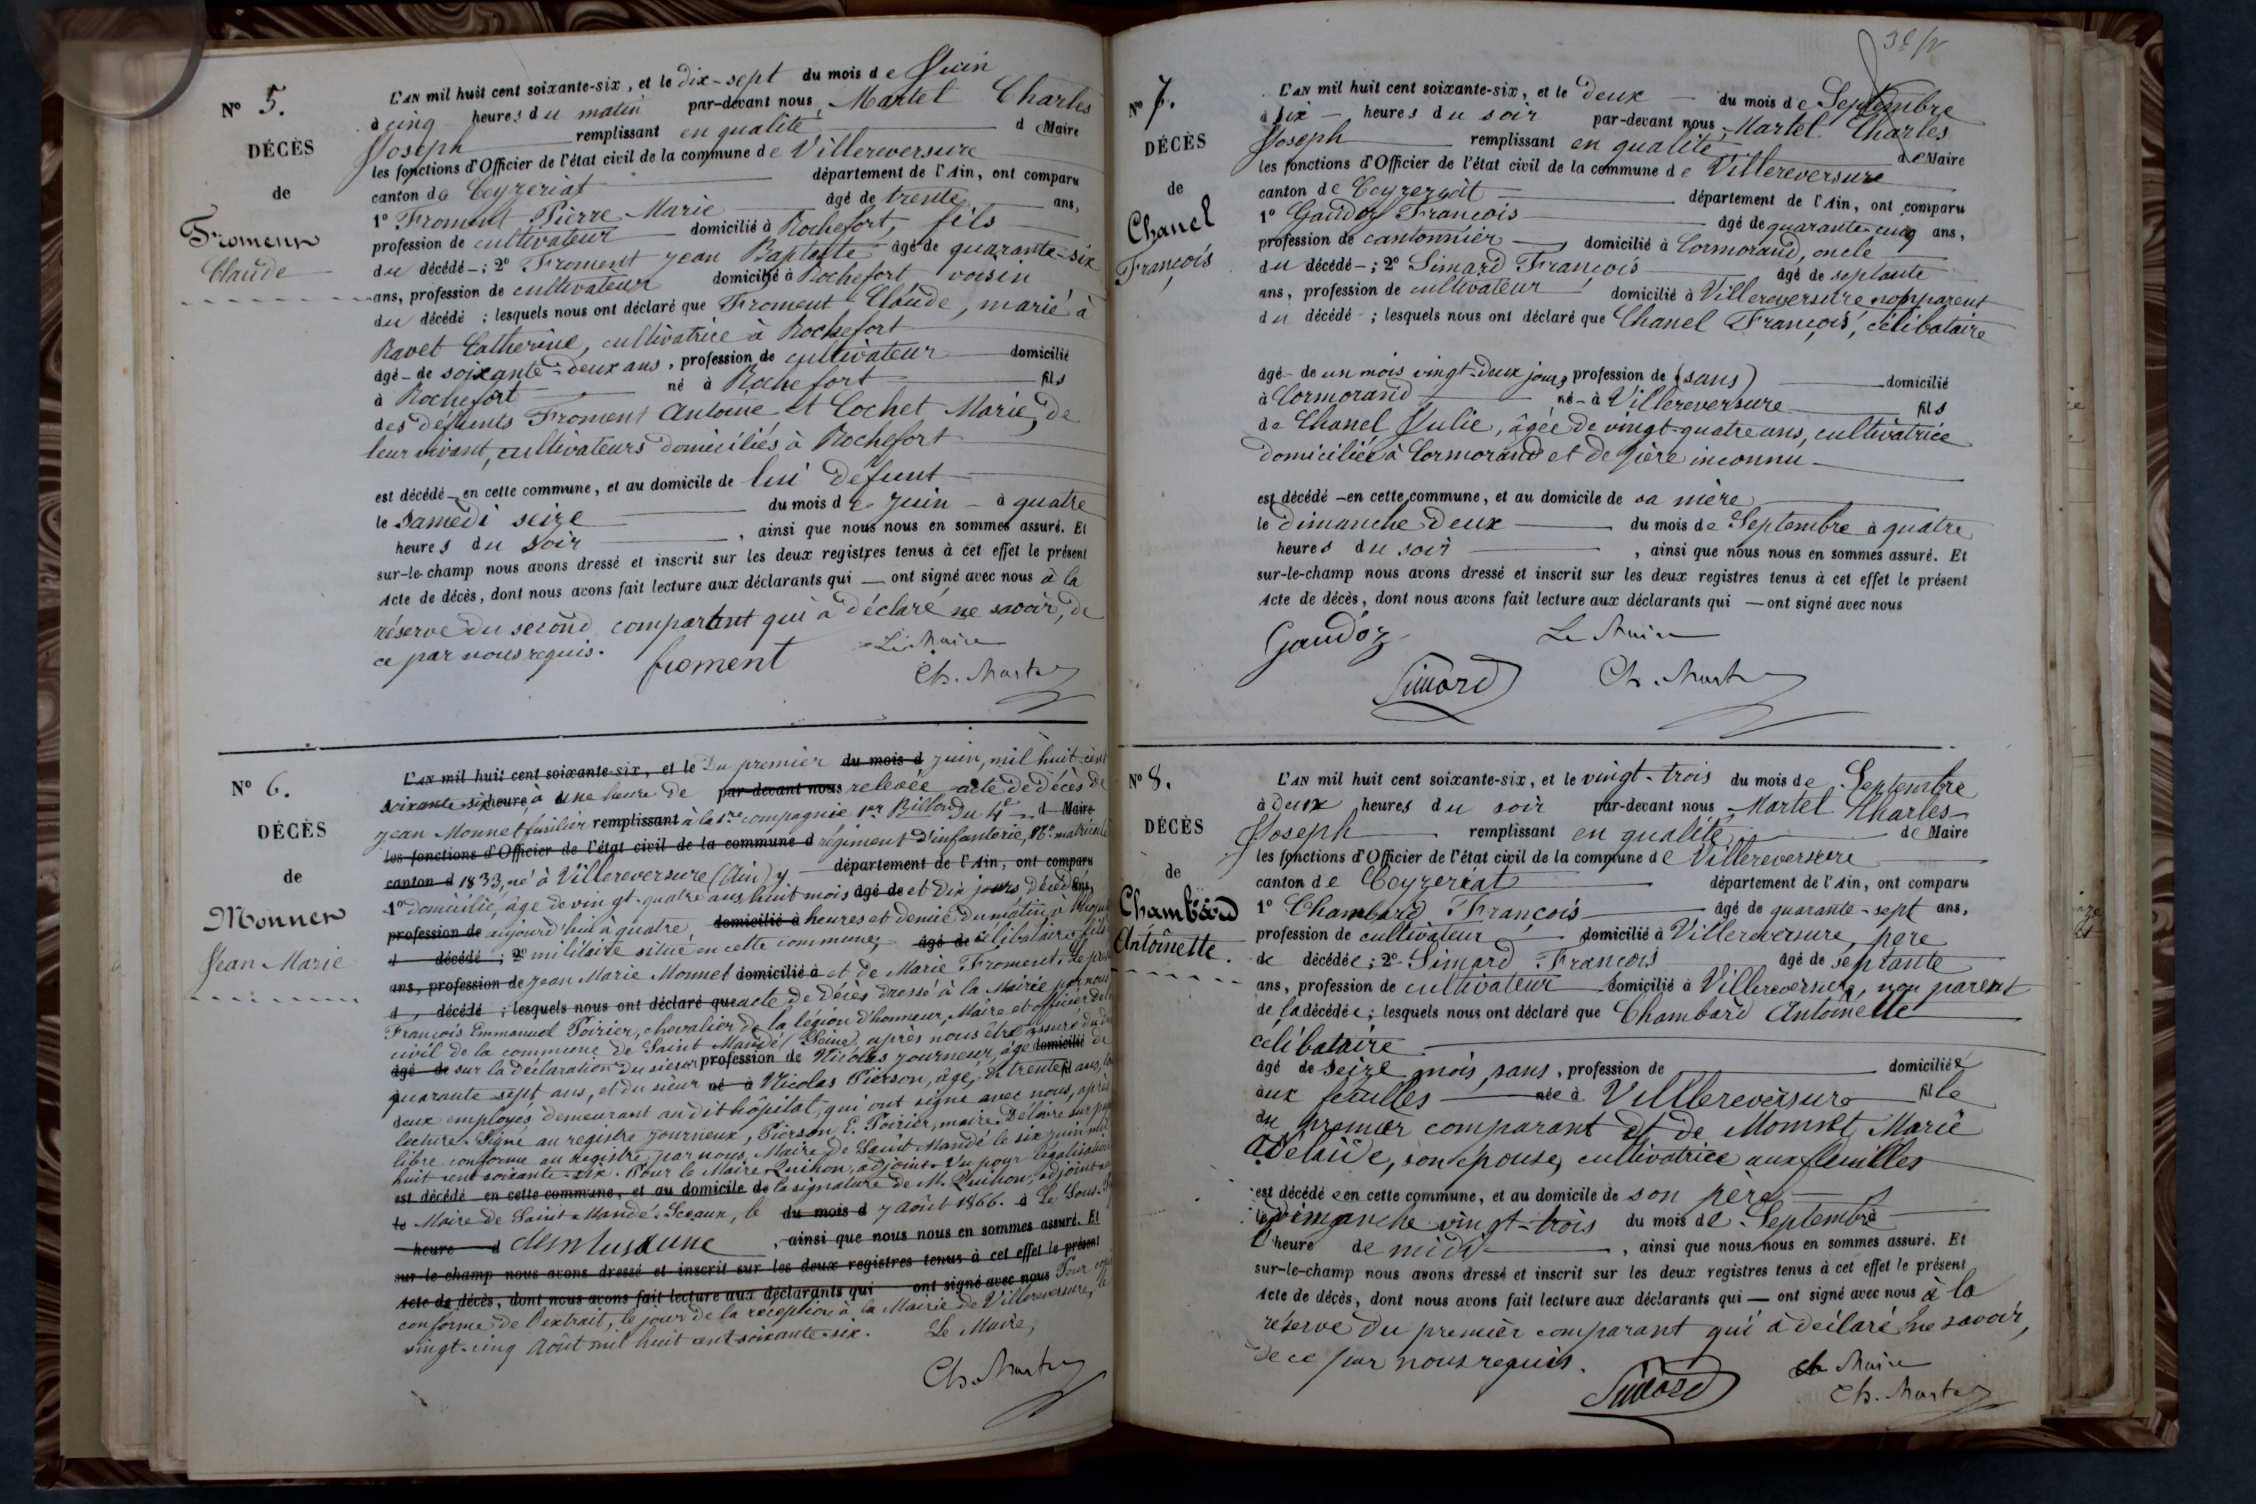 N° 5.
DÉCÈS
de
Froment
Claude
L'AN mil huit cent soixante-six, et le dix-sept du mois de Juin
à cinq heures du matin par-devant nous Martel Charles
Joseph remplissant en qualité d Maire
les fonctions d'Officier de l'état civil de la commune de Villereversure
canton de Ceyzeriat département de l'Ain, ont comparu
1° Froment Pierre Marie âgé de trente ans,
profession de cultivateur domicilié à Rochefort, fils
du décédé ; 2° Froment jean Baptiste âgé de quarante-six
ans, profession de cultivateur domicilié à Rochefort voisin
du décédé ; lesquels nous ont déclaré que Froment Claude, marié à
Ravet Catherine, cultivatrice à Rochefort
âgé de soixante-deux ans, profession de cultivateur domicilié
à Rochefort né à Rochefort fils
des défunts Froment Antoine et Cochet Marie, de
leur vivant, cultivateurs domiciliés à Rochefort
est décédé en cette commune, et au domicile de lui défunt
le Samedi seize du mois de juin à quatre
heures du soir, ainsi que nous nous en sommes assuré. Et
sur-le-champ nous avons dressé et inscrit sur les deux registres tenus à cet effet le présent
Acte de décès, dont nous avons fait lecture aux déclarants qui ont signé avec nous à la
réserve du second comparant qui a déclaré ne savoir, de
ce par nous requis.
froment
Le Maire
Ch. Martel
N° 6.
DÉCÈS
de
Monnet
Jean Marie
L'AN mil huit cent soixante-six, et le Du premier du mois d juin, mil huit cent
soixante six heure, à une heure de par-devant nous relevée acte de décès de
jean Monnet fusilier remplissant à la 1re compagnie 1er Billon du 4e d Maire
les fonctions d'Officier de l'état civil de la commune d régiment d'infanterie, N° matricule
canton d 1833, né à Villereversure (Ain) y département de l'Ain, ont comparu
1° domicilié, âgé de vingt-quatre ans huit mois âgé de et dix jours décédé ans,
profession de aujourd'hui à quatre, domicilié à heures et demie du matin, à
d décédé ; 2° militaire situé en cette commune, âgé de célibataire fils
ans, profession de jean Marie Monnet domicilié à et de Marie Froment. Le
d décédé ; lesquels nous ont déclaré que acte de décès dressé à la Mairie par nous
François Emmanuel Poirier, chevalier de la légion d'honneur, Maire et officier de
civil de la commune de Saint Mandé (Seine) après nous être assuré du
âgé de sur la déclaration du sieur profession de Nicolas journeux, âgé domicilié de
quarante sept ans, et du sieur né à Nicolas Pierson, âgé de trente ans,
deux employés demeurant au dit hôpital, qui ont signé avec nous, après
lecture. Signé au registre journeux, Pierson E. Poirier, maire. Délivré sur
libre conforme au registre, par nous, Maire de Saint Mandé le six juin mil
huit cent soixante-six. Pour le Maire Quihon, adjoint. Vu pour légalisation
est décédé en cette commune, et au domicile de la signature de M. Quihon, adjoint
le Maire de Saint Mandé. Sceaux, le du mois d 7 Août 1866. à Le Sous-
heure d, ainsi que nous nous en sommes assuré. Et
sur-le-champ nous avons dressé et inscrit sur les deux registres tenus à cet effet le présent
Acte de décès, dont nous avons fait lecture aux déclarants qui ont signé avec nous Pour
conforme de l'extrait, le jour de la réception à la Mairie de Villereversure, le
vingt-cinq Août mil huit cent soixante-six.
Le Maire,
Ch. Martel
N° 7.
DÉCÈS
de
Chanel
François
L'AN mil huit cent soixante-six, et le deux du mois de Septembre
à six heures du soir par-devant nous Martel Charles
Joseph remplissant en qualité de Maire
les fonctions d'Officier de l'état civil de la commune de Villereversure
canton de Ceyzeriat département de l'Ain, ont comparu
1° Gaudoz François âgé de quarante-cinq ans,
profession de cantonnier domicilié à Cormorand, oncle
du décédé ; 2° Simard François âgé de septante
ans, profession de cultivateur domicilié à Villereversure non parent
du décédé ; lesquels nous ont déclaré que Chanel François, célibataire
âgé de un mois vingt-deux jours profession de (sans) domicilié
à Cormorand né à Villereversure fils
de Chanel Julie, âgée de vingt-quatre ans, cultivatrice
domiciliée à Cormorand et de père inconnu
est décédé en cette commune, et au domicile de sa mère
le dimanche deux du mois de Septembre à quatre
heures du soir, ainsi que nous nous en sommes assuré. Et
sur-le-champ nous avons dressé et inscrit sur les deux registres tenus à cet effet le présent
Acte de décès, dont nous avons fait lecture aux déclarants qui ont signé avec nous
Gaudoz
Le Maire
Simard
Ch. Martel
N° 8.
DÉCÈS
de
Chambard
Antoinette.
L'AN mil huit cent soixante-six, et le vingt-trois du mois de Septembre
à deux heures du soir par-devant nous Martel Charles
Joseph remplissant en qualité de Maire
les fonctions d'Officier de l'état civil de la commune de Villereversure
canton de Ceyzeriat département de l'Ain, ont comparu
1° Chambard François âgé de quarante-sept ans,
profession de cultivateur domicilié à Villereversure, père
de décédée ; 2° Simard François âgé de septante
ans, profession de cultivateur domicilié à Villereversure, non parent
de la décédée ; lesquels nous ont déclaré que Chambard Antoinette
célibataire
âgé de seize mois, sans, profession de domiciliée
aux feuilles née à Villlereversure fille
du premier comparant et de Monnet Marie
Adélaïde, son épouse, cultivatrice aux feuilles
est décédée en cette commune, et au domicile de son père
le dimanche vingt-trois du mois de Septembre à
l'heure de midi, ainsi que nous nous en sommes assuré. Et
sur-le-champ nous avons dressé et inscrit sur les deux registres tenus à cet effet le présent
Acte de décès, dont nous avons fait lecture aux déclarants qui ont signé avec nous à la
réserve du premier comparant qui a déclaré ne savoir,
de ce par nous requis.
Simard
Le Maire
Ch. Martel